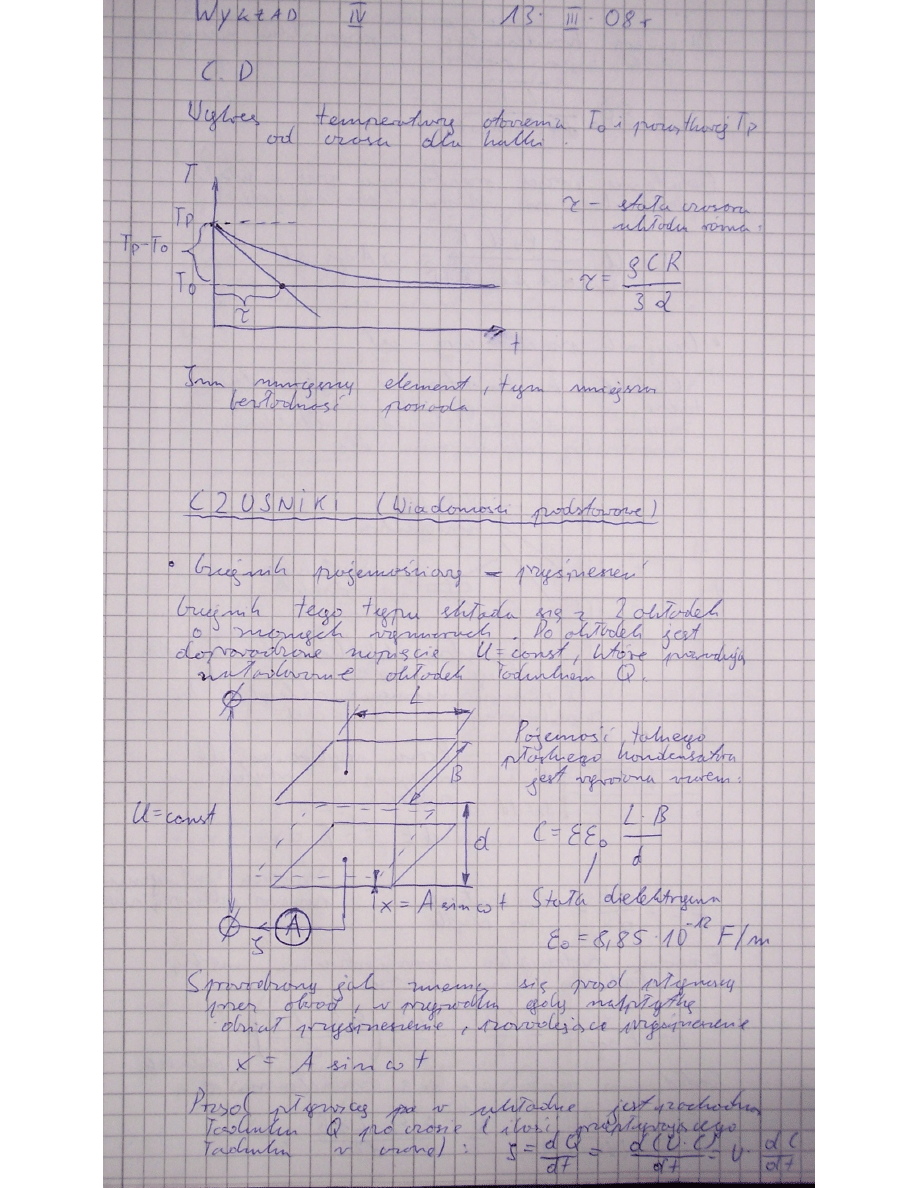 WYKŁAD IV 13. III. 08r
C.D
Wykres temperatury otoczenia To i początkowej Tp
od czasu dla kulki.
T
Tp
τ - stała czasowa
układu
Tp-To
τ = ρCR / 3α
To
τ
t
Im mniejszy element, tym mniejszą
bezwładność posiada
CZUJNIKI (Wiadomości podstawowe)
• Czujnik pojemnościowy - przyśpieszeń
Czujnik tego typu składa się z 2 okładek
o znanych wymiarach. Do okładek jest
doprowadzone napięcie U=const, które powoduje
naładowanie okładek ładunkiem Q.
L
Pojemność takiego
płaskiego kondensatora
jest wyrażona wzorem:
B
U=const
C = εε₀ L·B / d
d
x = A sin ω t
Stała dielektryczna
A
ε₀ = 8,85·10⁻¹² F/m
Sprawdzamy jak zmienia się prąd płynący
przez obwód, w przypadku gdy na płytkę
działa przyśpieszenie,
x = A sin ω t
Prąd płynący w układzie jest pochodną
ładunku Q po czasie (ilość przepływającego
ładunku w czasie): J = dQ/dt = d(U·C)/dt = U·dC/dt